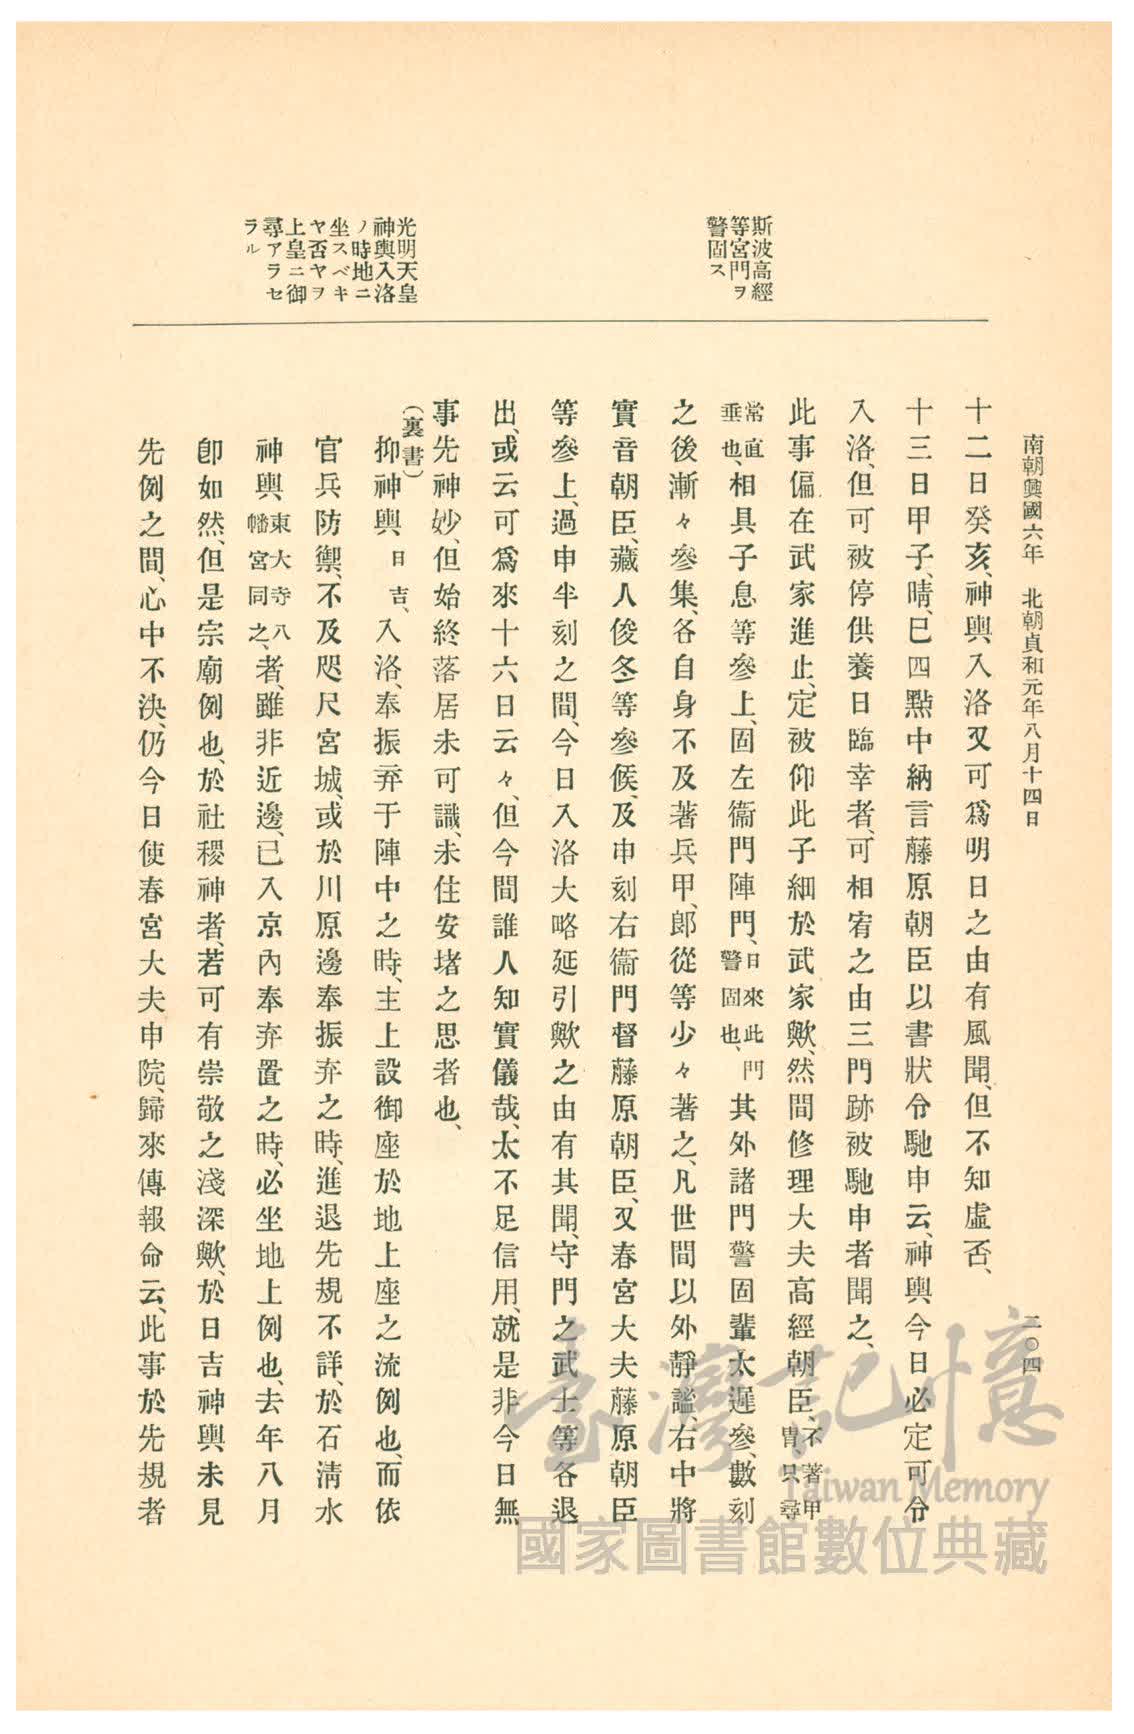 南朝興國六年　北朝貞和元年八月十四日
二〇四
斯波高經
等宮門ヲ
警固ス
光明天皇
神輿入洛
ノ時地ニ
坐スベキ
ヤ否ヤヲ
上皇ニ御
尋アラセ
ラル
十二日癸亥、神輿入洛又可爲明日之由有風聞、但不知虛否、
十三日甲子、晴、巳四點中納言藤原朝臣以書狀令馳申云、神輿今日必定可令
入洛、但可被停供養日臨幸者、可相宥之由三門跡被馳申者聞之、
此事偏在武家進止、定被仰此子細於武家歟、然間修理大夫高經朝臣、不著甲冑、只尋
常直垂也、相具子息等參上、固左衞門陣門、日來此門警固也、其外諸門警固輩太遲參、數刻
之後漸々參集、各自身不及著兵甲、郎從等少々著之、凡世間以外靜謐、右中將
實音朝臣、藏人俊冬等參候、及申刻右衞門督藤原朝臣、又春宮大夫藤原朝臣
等參上、過申半刻之間、今日入洛大略延引歟之由有其聞、守門之武士等各退
出、或云可爲來十六日云々、但今間誰人知實儀哉、太不足信用、就是非今日無
事先神妙、但始終落居未可識、未住安堵之思者也、
（裏書）
抑神輿日吉、入洛、奉振弃于陣中之時、主上設御座於地上座之流例也、而依
官兵防禦、不及咫尺宮城、或於川原邊奉振弃之時、進退先規不詳、於石淸水
神輿東大寺八幡宮同之、者、雖非近邊、已入京內奉弃置之時、必坐地上例也、去年八月
卽如然、但是宗廟例也、於社稷神者、若可有崇敬之淺深歟、於日吉神輿未見
先例之間、心中不決、仍今日使春宮大夫申院、歸來傳報命云、此事於先規者
臺灣記憶
Taiwan Memory
國家圖書館數位典藏